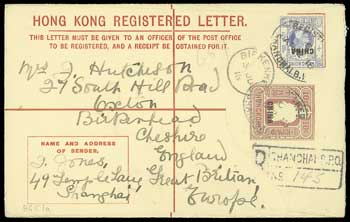 HONG KONG REGISTERED LETTER.
THIS LETTER MUST BE GIVEN TO AN OFFICER OF THE POST OFFICE
TO BE REGISTERED, AND A RECEIPT BE OBTAINED FOR IT.
CHINA
Mrs J. Hutchison
27 South Hill Road
Oxton
Birkenhead
Cheshire
England
Great Britian
Europe
CHINA
NAME AND ADDRESS
OF SENDER.
J. Jones,
49 Temple Lane
Shanghai
R SHANGHAI B.P.O.
No 145